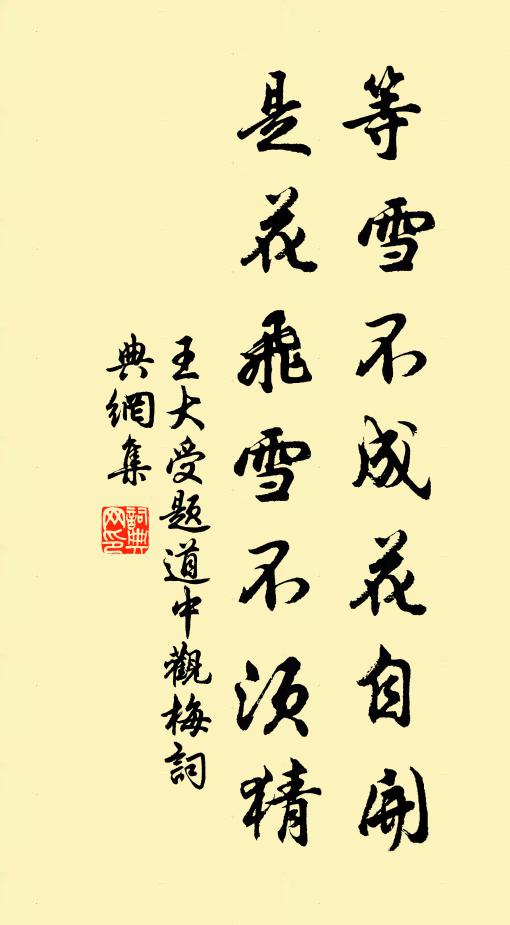 等雪不成花自開
是花飛雪不須猜
王大受題道中觀梅詞
典網集
詞典網印